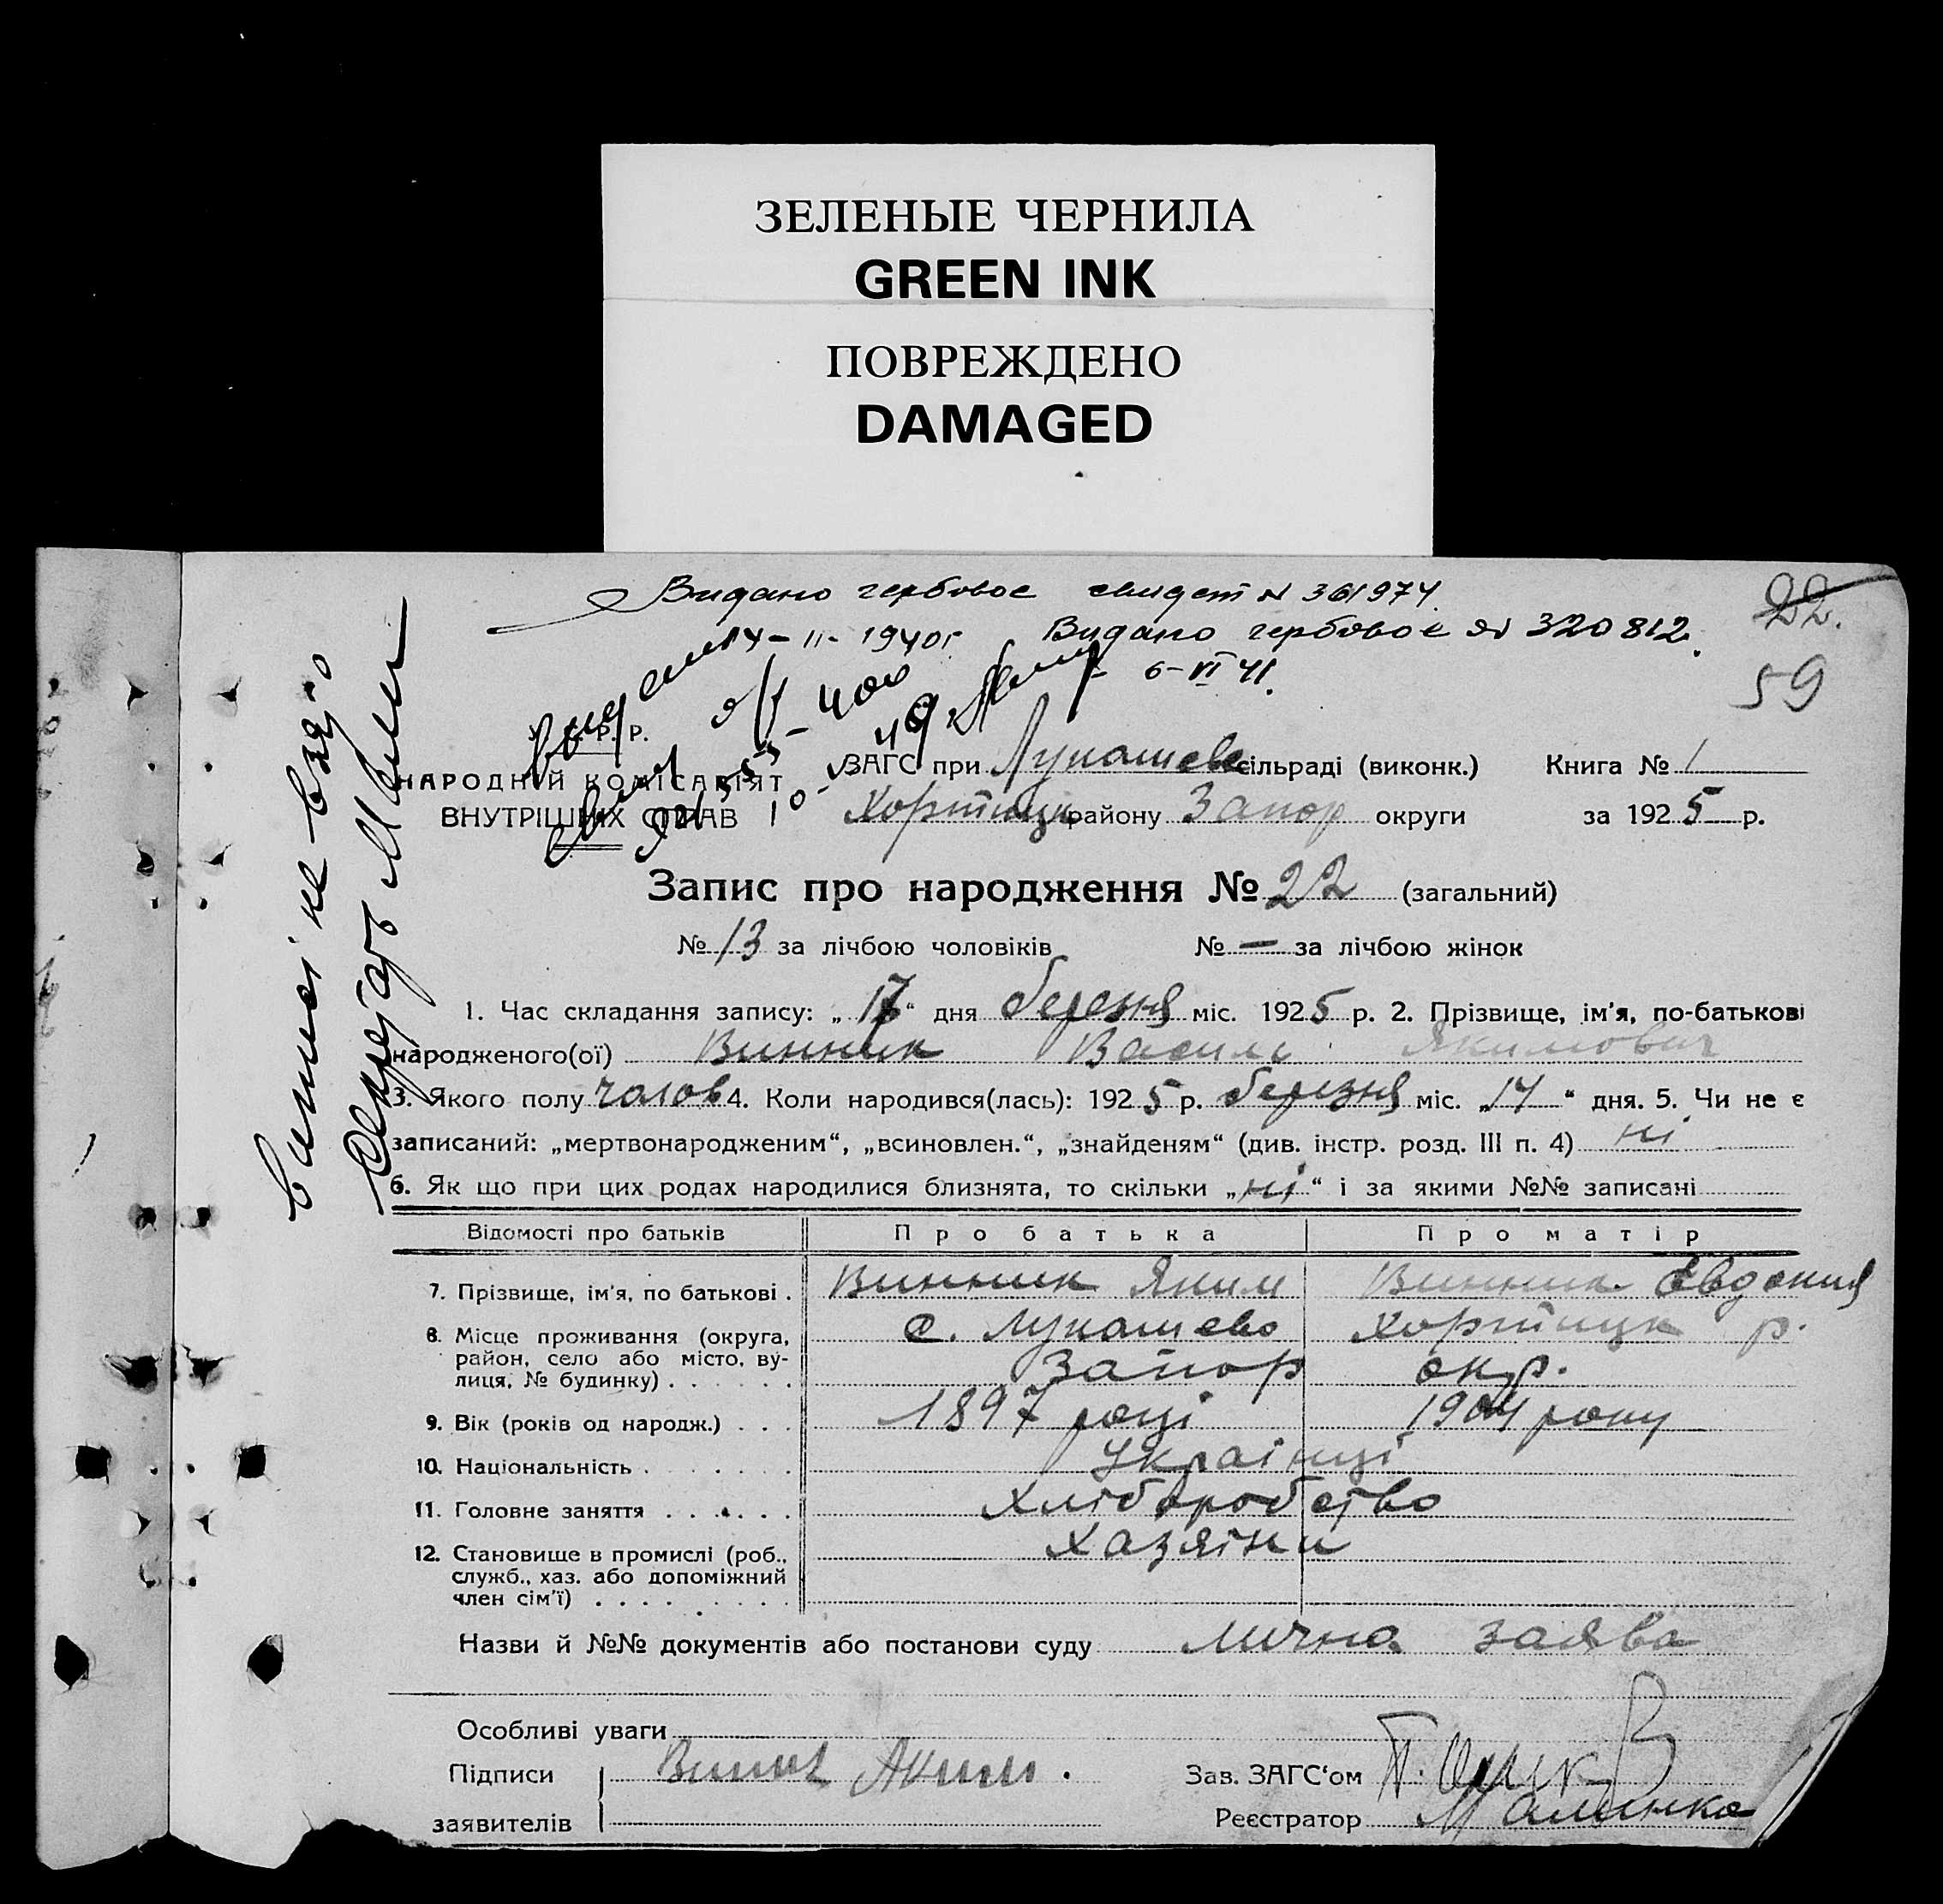 ЗЕЛЕНЫЕ ЧЕРНИЛА
GREEN INK
ПОВРЕЖДЕНО
DAMAGED
Видано гербовое свидет N 361974
14-II-1940г Видано гербовое N 320812.
6-VI 41.
22.
59
Р. Р.
НАРОДНІЙ КОМІСАРІЯТ
ВНУТРІШНІХ СПРАВ
ЗАГС при Лукашеве сільраді (виконк.) Книга № 1
Хортицк району Запор округи за 1925 р.
Запис про народження № 22 (загальний)
№ 13 за лічбою чоловіків № — за лічбою жінок
1. Час складання запису: „17“ дня березня міс. 1925 р. 2. Прізвище, ім'я, по-батькові
народженого(ої) Винник Василь Якимович
3. Якого полу чолов 4. Коли народився(лась): 1925 р. березня міс. „14“ дня. 5. Чи не є
записаний: „мертвонародженим“, „всиновлен.“, „знайденям“ (див. інстр. розд. III п. 4) ні
6. Як що при цих родах народилися близнята, то скільки „ні“ і за якими №№ записані
Відомості про батьків Про батька Про матір
7. Прізвище, ім'я, по батькові . Винник Яким Винник Євдокия
8. Місце проживання (округа, с. Лукашево Хортицк р.
район, село або місто, ву- Запор окр.
лиця, № будинку) . . . . . .
9. Вік (років од народж.) . . . 1897 році 1904 року
10. Національність . . . . . . . Українці
11. Головне заняття . . . . . . Хліборобство
12. Становище в промислі (роб., Хазяїни
служб., хаз. або допоміжний
член сім'ї) . . . . . . . . .
Назви й №№ документів або постанови суду лична заява
Особливі уваги
Підписи Винник Аким .
заявителів
Зав. ЗАГС‘ом
Реєстратор Малинка
виписі не взято
Секретарь